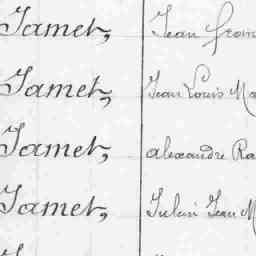 Jamet, Jean fran
Jamet, Jean Louis Ma
Jamet, alexandre Ra
Jamet, Julien Jean M